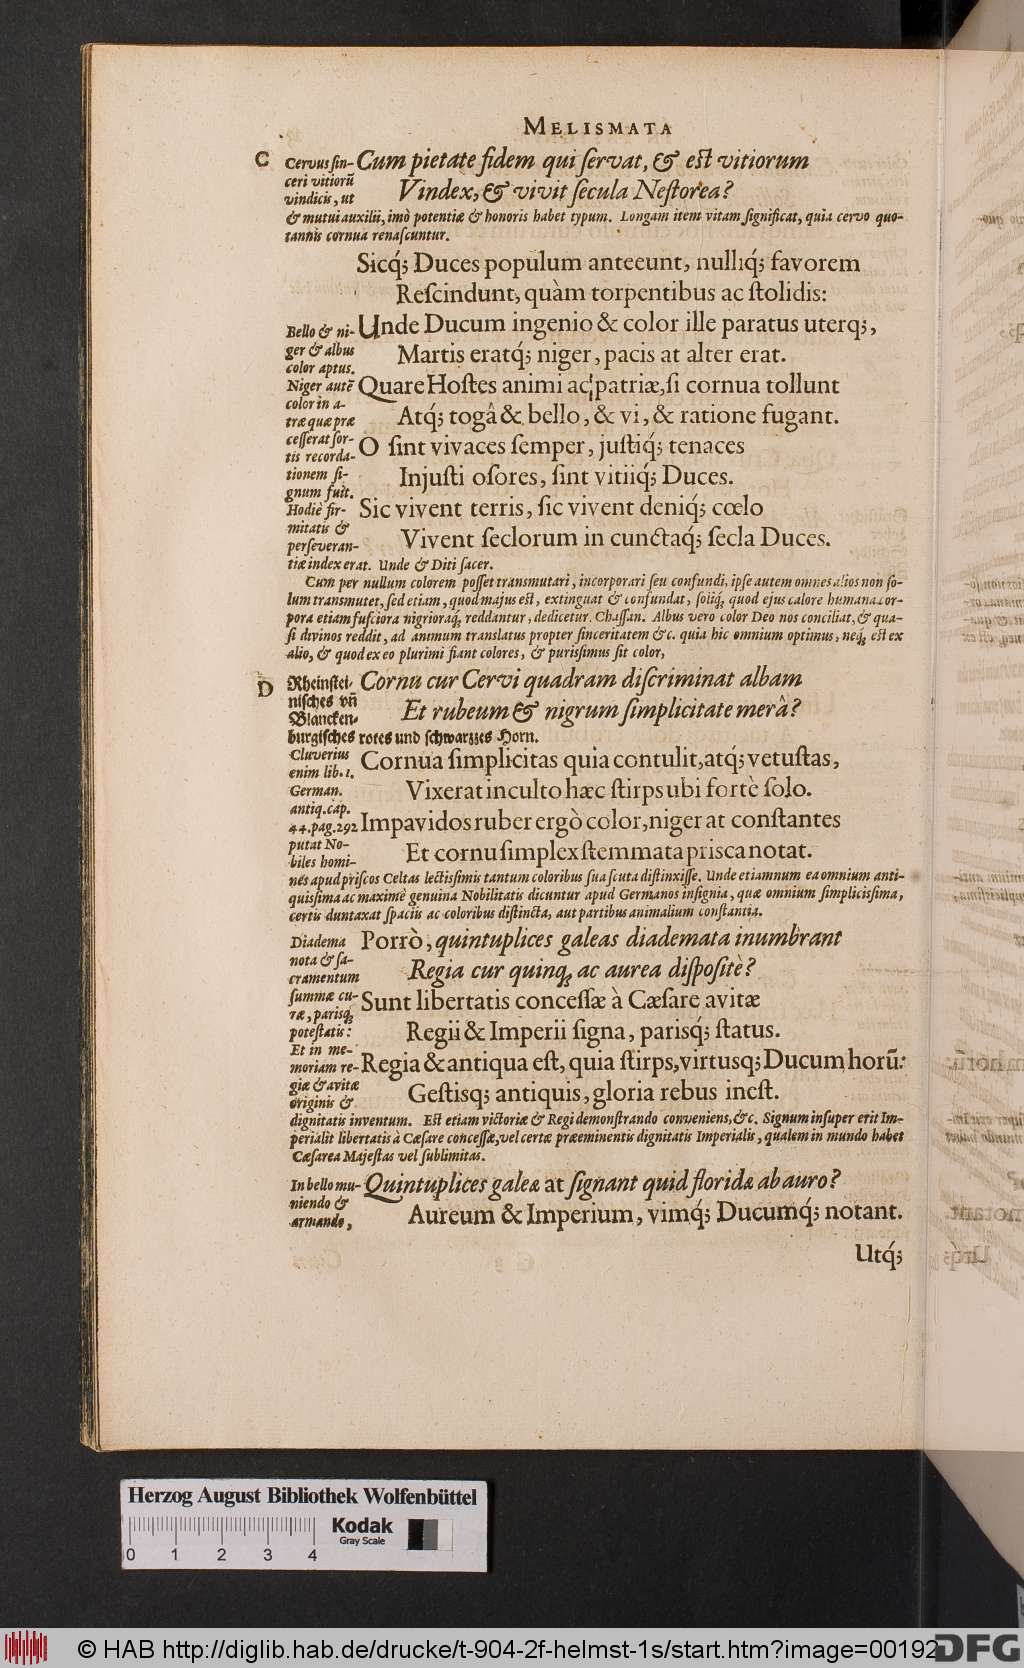 MELISMATA
C
Cervus sin-
ceri vitiorũ
vindicis, ut
Cum pietate fidem qui servat, & est vitiorum
Vindex, & vivit secula Nestorea?
& mutui auxilii, imò potentiæ & honoris habet typum. Longam item vitam significat, quia cervo quo-
tannis cornua renascuntur.
Sicq́; Duces populum anteeunt, nulliq́; favorem
Rescindunt, quàm torpentibus ac stolidis:
Bello & ni-
ger & albus
color aptus.
Niger autẽ
color in a-
træ quæ præ
cesserat sor-
tis recorda-
tionem si-
gnum fuit.
Hodiè fir-
mitatis &
perseveran-
Unde Ducum ingenio & color ille paratus uterq;,
Martis eratq́; niger, pacis at alter erat.
Quare Hostes animi ac patriæ, si cornua tollunt
Atq́; togâ & bello, & vi, & ratione fugant.
O sint vivaces semper, justiq́; tenaces
Injusti osores, sint vitiiq́; Duces.
Sic vivent terris, sic vivent deniq́; cœlo
Vivent seclorum in cunctaq́; secla Duces.
tiæ index erat. Unde & Diti sacer.
Cum per nullum colorem posset transmutari, incorporari seu confundi, ipse autem omnes alios non so-
lum transmutet, sed etiam, quod majus est, extinguat & confundat, soliq́; quod ejus calore humana cor-
pora etiam fusciora nigrioraq́; reddantur, dedicetur. Chassan. Albus vero color Deo nos conciliat, & qua-
si divinos reddit, ad animum translatus propter sinceritatem &c. quia hic omnium optimus, neq́; est ex
alio, & quod ex eo plurimi fiant colores, & purissimus sit color,
D
Rheinstei-
nisches vñ
Blancken-
Cornu cur Cervi quadram discriminat albam
Et rubeum & nigrum simplicitate merâ?
burgisches rotes und schwarzes Horn.
Cluverius
enim lib. 1.
German.
antiq. cap.
44. pag. 292
putat No-
biles homi-
Cornua simplicitas quia contulit, atq́; vetustas,
Vixerat inculto hæc stirps ubi fortè solo.
Impavidos ruber ergò color, niger at constantes
Et cornu simplex stemmata prisca notat.
nes apud priscos Celtas lectissimis tantum coloribus sua scuta distinxisse. Unde etiamnum ea omnium anti-
quissima ac maximè genuina Nobilitatis dicuntur apud Germanos insignia, quæ omnium simplicissima,
certis duntaxat spaciis ac coloribus distincta, aut partibus animalium constantia.
Diadema
nota & sa-
cramentum
summæ cu-
ræ, parisq́;
potestatis:
Et in me-
moriam re-
giæ & avitæ
originis &
Porrò, quintuplices galeas diademata inumbrant
Regia cur quinq́; ac aurea dispositè?
Sunt libertatis concessæ à Cæsare avitæ
Regii & Imperii signa, parisq́; status.
Regia & antiqua est, quia stirps, virtusq; Ducum horũ:
Gestisq; antiquis, gloria rebus inest.
dignitatis inventum. Est etiam victoriæ & Regi demonstrando conveniens, &c. Signum insuper erit Im-
perialit libertatis à Cæsare concessæ, vel certæ præeminentis dignitatis Imperialis, qualem in mundo habet
Cæsarea Majestas vel sublimitas.
In bello mu-
niendo &
armando,
Quintuplices galeæ at signant quid floridæ ab auro?
Aureum & Imperium, vimq́; Ducumq́; notant.
Utq́;
Herzog August Bibliothek Wolfenbüttel
0 1 2 3 4
Kodak
Gray Scale
© HAB http://diglib.hab.de/drucke/t-904-2f-helmst-1s/start.htm?image=00192
DFG